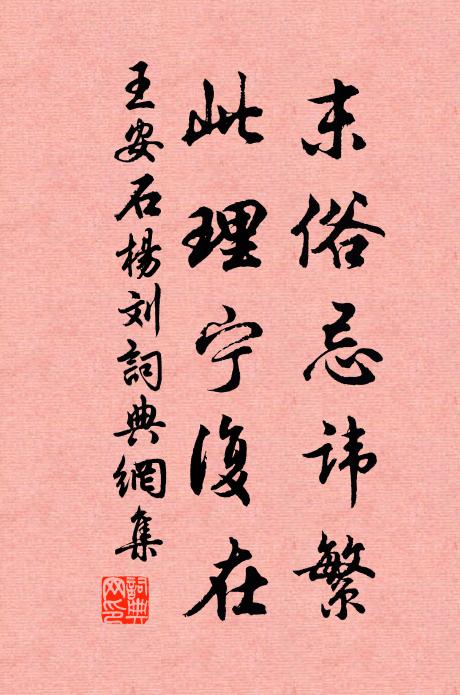 末俗忌讳繁
此理宁復在
王安石楊刘詞典網集
詞典網印